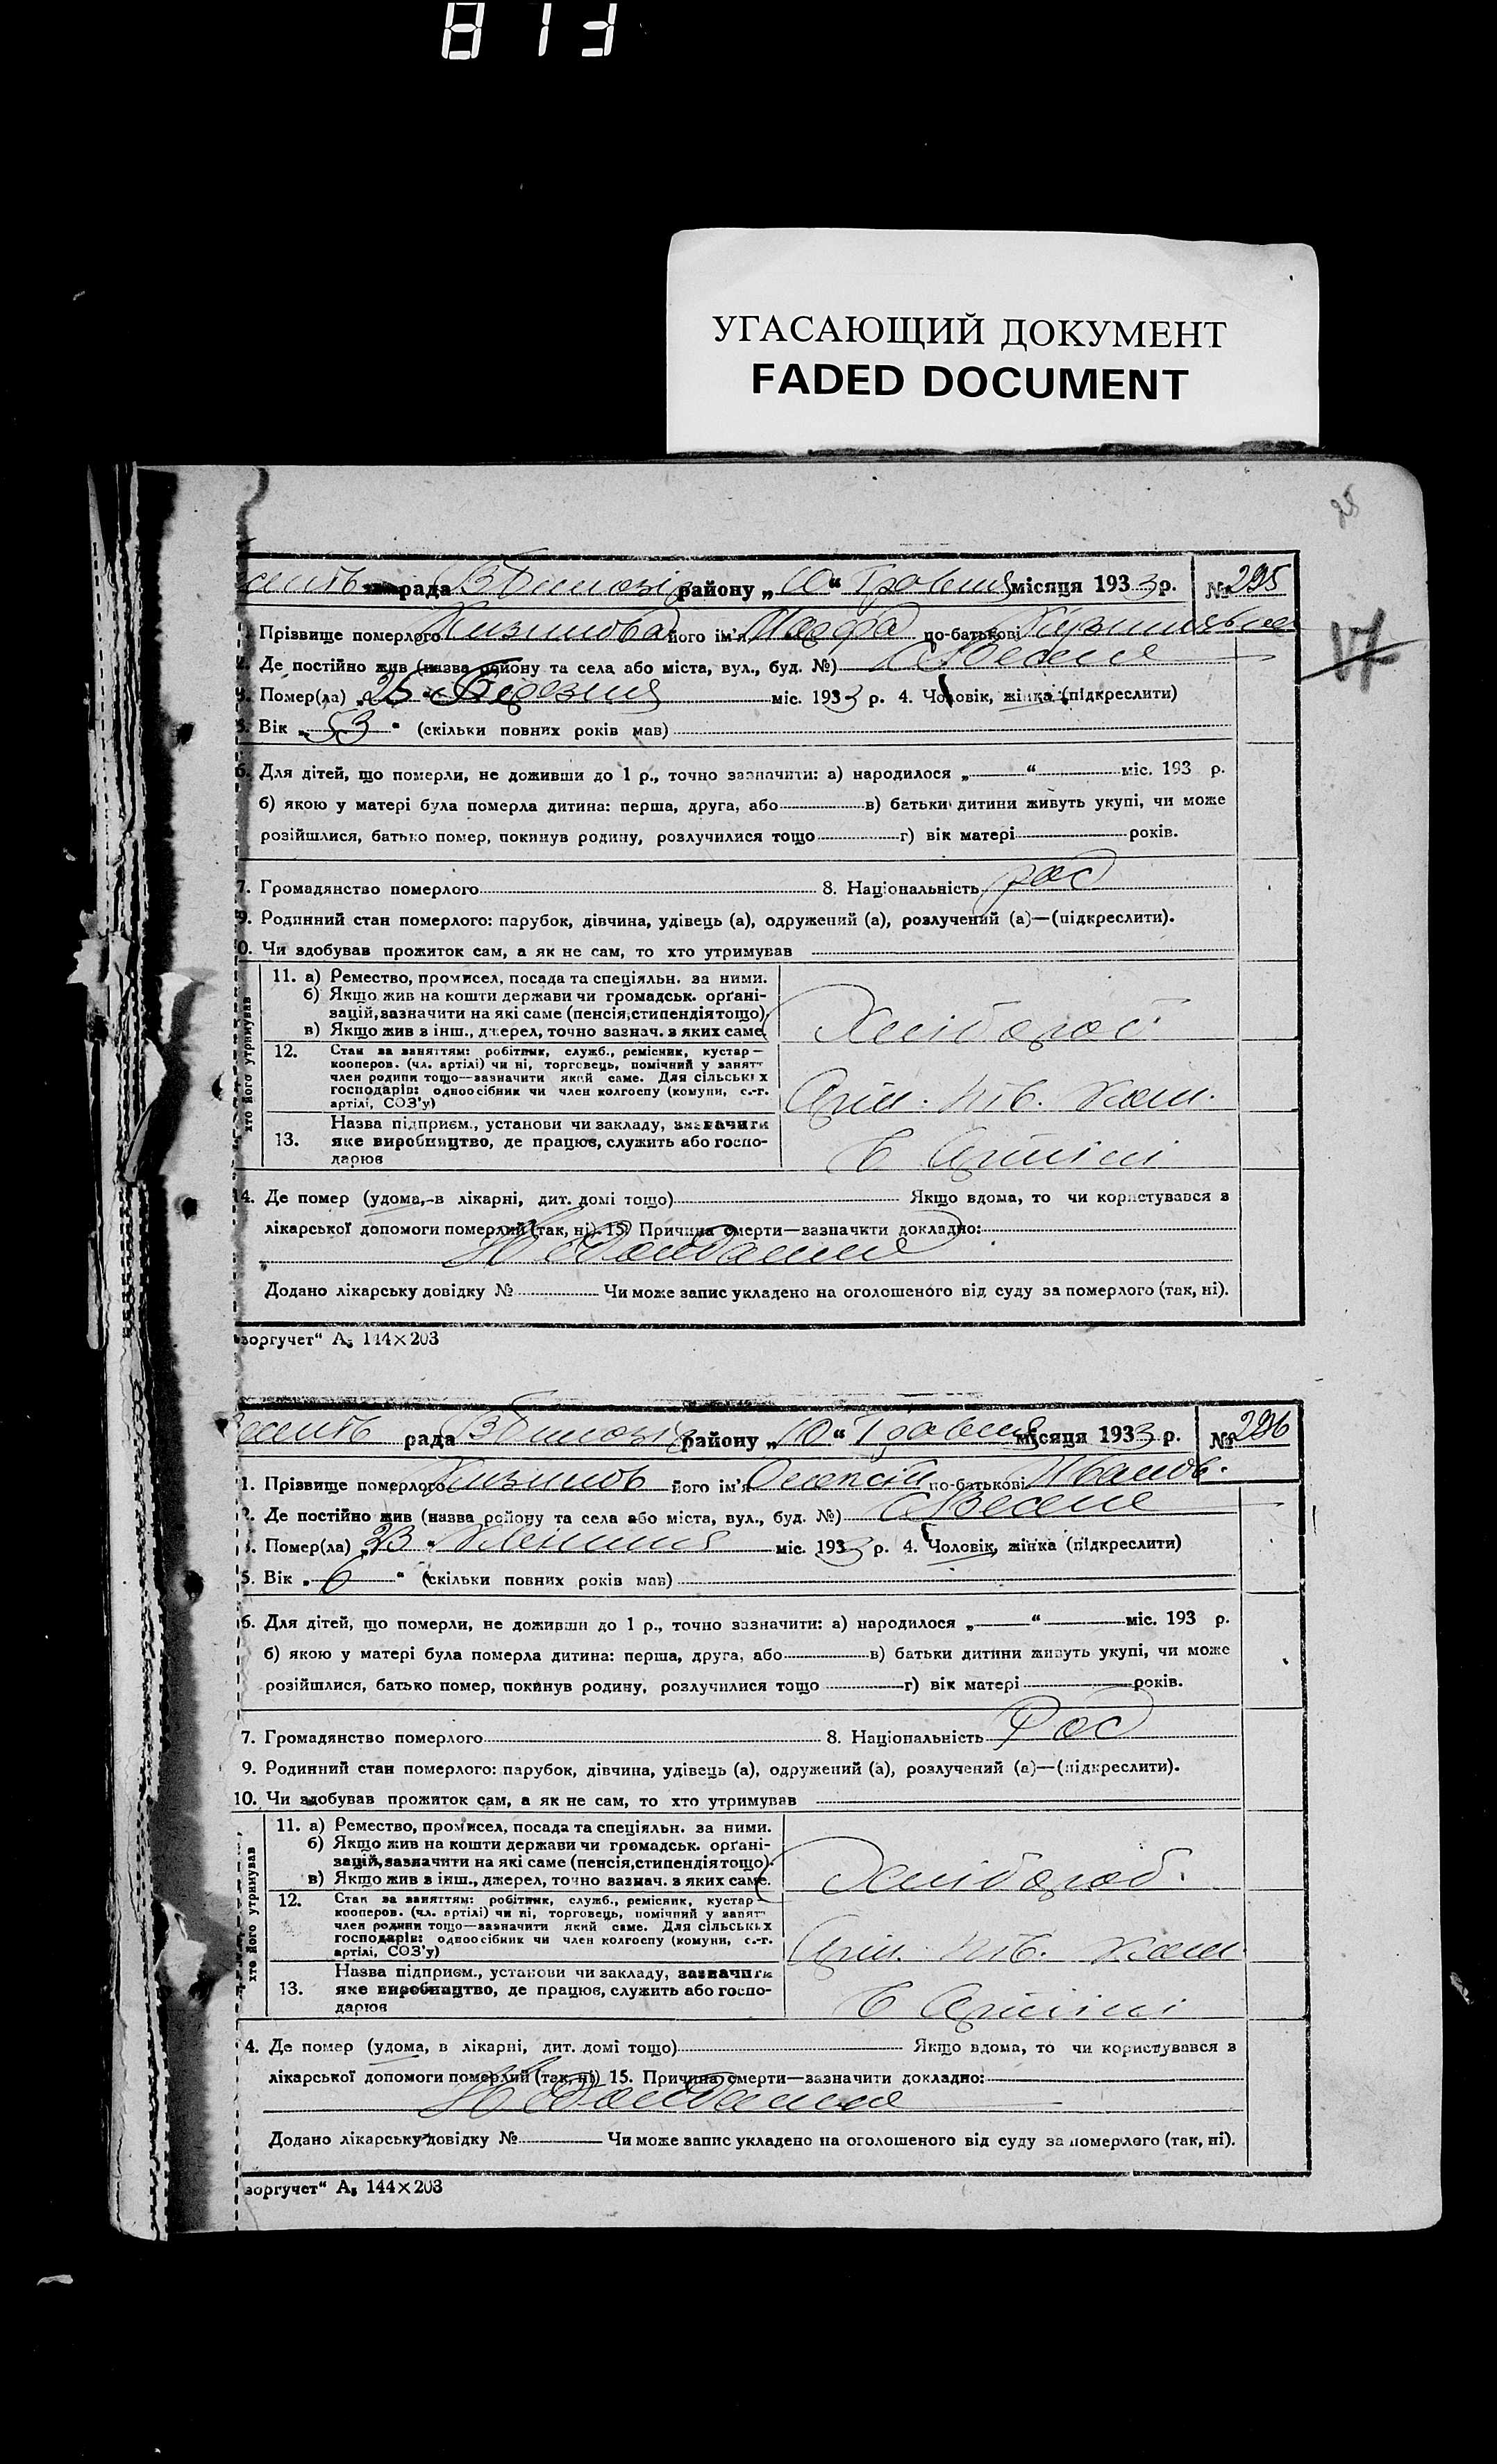 813
УГАСАЮЩИЙ ДОКУМЕНТ
FADED DOCUMENT
рада району „10“ Травня місяця 1933 р. № 295
Прізвище померлого його ім'я Марфа по-батькові
2. Де постійно жив (назва району та села або міста, вул., буд. №) с Веселе
3. Помер(ла) „ “ Березня міс. 1933 р. 4. Чоловік, жінка (підкреслити)
5. Вік „53“ (скільки повних років мав)
6. Для дітей, що померли, не доживши до 1 р., точно зазначити: а) народилося „ “ міс. 193 р.
б) якою у матері була померла дитина: перша, друга, або в) батьки дитини живуть укупі, чи може
розійшлися, батько помер, покинув родину, розлучилися тощо г) вік матері років.
7. Громадянство померлого 8. Національність рос
9. Родинний стан померлого: парубок, дівчина, удівець (а), одружений (а), розлучений (а)—(підкреслити).
0. Чи здобував прожиток сам, а як не сам, то хто утримував
хто його утримував
11. а) Ремество, промисел, посада та спеціяльн. за ними.
б) Якщо жив на кошти держави чи громадськ. орґані-
зацій, зазначити на які саме (пенсія, стипендія тощо).
в) Якщо жив з інш., джерел, точно зазнач. з яких саме.
Хлібороб.
12. Стан за заняттям: робітник, служб., ремісник, кустар—
кооперов. (чл. артілі) чи ні, торговець, помічний у занятт
член родини тощо—зазначити який саме. Для сільських
господарів: одноосібник чи член колгоспу (комуни, с.-г.
артілі, СОЗ'у)
13. Назва підприєм., установи чи закладу, зазначити
яке виробництво, де працює, служить або госпо-
дарює
в Артілі
4. Де помер (удома, в лікарні, дит. домі тощо) Якщо вдома, то чи користувався з
лікарської допомоги померлий (так, ні) 15. Причина смерти—зазначити докладно:
Додано лікарську довідку № Чи може запис укладено на оголошеного від суду за померлого (так, ні).
зоргучет“ А5 144×203
рада району „10“ Травня місяця 1933 р. № 296
1. Прізвище померлого його ім'я Олексій по-батькові Іванов.
2. Де постійно жив (назва району та села або міста, вул., буд. №) с Веселе
3. Помер(ла) „23“ міс. 1933 р. 4. Чоловік, жінка (підкреслити)
5. Вік „6“ (скільки повних років мав)
6. Для дітей, що померли, не доживши до 1 р., точно зазначити: а) народилося „ “ міс. 193 р.
б) якою у матері була померла дитина: перша, друга, або в) батьки дитини живуть укупі, чи може
розійшлися, батько помер, покинув родину, розлучилися тощо г) вік матері років.
7. Громадянство померлого 8. Національність Рос
9. Родинний стан померлого: парубок, дівчина, удівець (а), одружений (а), розлучений (а)—(підкреслити).
10. Чи здобував прожиток сам, а як не сам, то хто утримував
хто його утримував
11. а) Ремество, промисел, посада та спеціяльн. за ними.
б) Якщо жив на кошти держави чи громадськ. орґані-
зацій, зазначити на які саме (пенсія, стипендія тощо).
в) Якщо жив з інш., джерел, точно зазнач. з яких саме.
Хлібороб.
12. Стан за заняттям: робітник, служб., ремісник, кустар—
кооперов. (чл. артілі) чи ні, торговець, помічний у занятт
член родини тощо—зазначити який саме. Для сільських
господарів: одноосібник чи член колгоспу (комуни, с.-г.
артілі, СОЗ'у)
13. Назва підприєм., установи чи закладу, зазначити
яке виробництво, де працює, служить або госпо-
дарює
в Артілі
4. Де помер (удома, в лікарні, дит. домі тощо) Якщо вдома, то чи користувався з
лікарської допомоги померлий (так, ні) 15. Причина смерти—зазначити докладно:
Додано лікарську довідку № Чи може запис укладено на оголошеного від суду за померлого (так, ні).
зоргучет“ А5 144×203